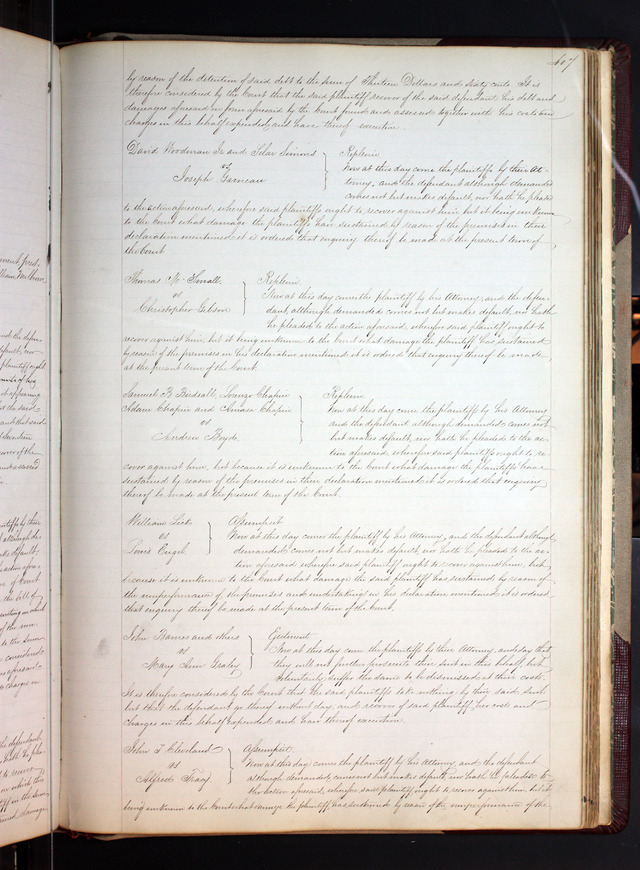 407
by reason of the detention of said debt to the sum of Thirteen Dollars and sixty cents. It is
therefore considered by the Court that the said plaintiff recover of the said defendant his debt and
damages aforesaid in form aforesaid by the Court found and assessed together with his costs and
charges in this behalf expended, and have thereof execution.
David Woodman Jr and Silas Simmons
vs
Joseph Garneau
Replevin
Now at this day come the plaintiffs by their At-
torney, and the defendant although demanded
comes not but makes default, nor hath he pleaded
to the action aforesaid, wherefore said plaintiffs ought to recover against him but it being unknown
to the Court what damage the plaintiffs have sustained by reason of the premises in their
declaration mentioned it is ordered that enquiry thereof be made at the present term of
the Court
Thomas M. Small
vs
Christopher Gibson
Replevin
Now at this day comes the plaintiff by his Attorney, and the defen-
dant although demanded comes not but makes default, nor hath
he pleaded to the action aforesaid, wherefore said plaintiff ought to
recover against him, but it being unknown to the Court what damage the plaintiff has sustained
by reason of the premises in his declaration mentioned it is ordered that enquiry thereof be made
at the present term of the Court.
Samuel B. Birdsall, Lorenzo Chapin
Adam Chapin and Amasa Chapin
vs
Andrew Boyde
Replevin
Now at this day come the plaintiffs by his Attorney
and the defendant although demanded comes not
but makes default, nor hath he pleaded to the ac-
tion aforesaid, wherefore said plaintiffs ought to re-
cover against him, but because it is unknown to the Court what damage the plaintiffs have
sustained by reason of the premises in their declaration mentioned it is ordered that enquiry
thereof be made at the present term of the Court.
William
vs
Louis Engel
Assumpsit
Now at this day comes the plaintiff by his Attorney, and the defendant although
demanded comes not but makes default, nor hath he pleaded to the ac-
tion aforesaid wherefore said plaintiff ought to recover against him, but
because it is unknown to the Court what damage the said plaintiff has sustained by reason of
the nonperformance of the promises and undertakings in his declaration mentioned it is ordered
that enquiry thereof be made at the present term of the Court.
John Barnes and others
vs
Mary Ann
Ejectment
Now at this day come the plaintiffs by their Attorney, and say that
they will not further prosecute their suit in this behalf, but
voluntarily suffer the same to be dismissed at their costs.
It is therefore considered by the Court that the said plaintiffs take nothing by their said suit
but that the defendant go thereof without day, and recover of said plaintiffs her costs and
charges in this behalf expended, and have thereof execution.
John T Cleveland
vs
Alfred Tracy
Assumpsit.
Now at this day comes the plaintiff by his Attorney, and the defendant
although demanded, comes not but makes default, nor hath he pleaded to
the action aforesaid, wherefore said plaintiff ought to recover against him, but it
being unknown to the Court what damage the plaintiff has sustained by reason of the nonperformance of the